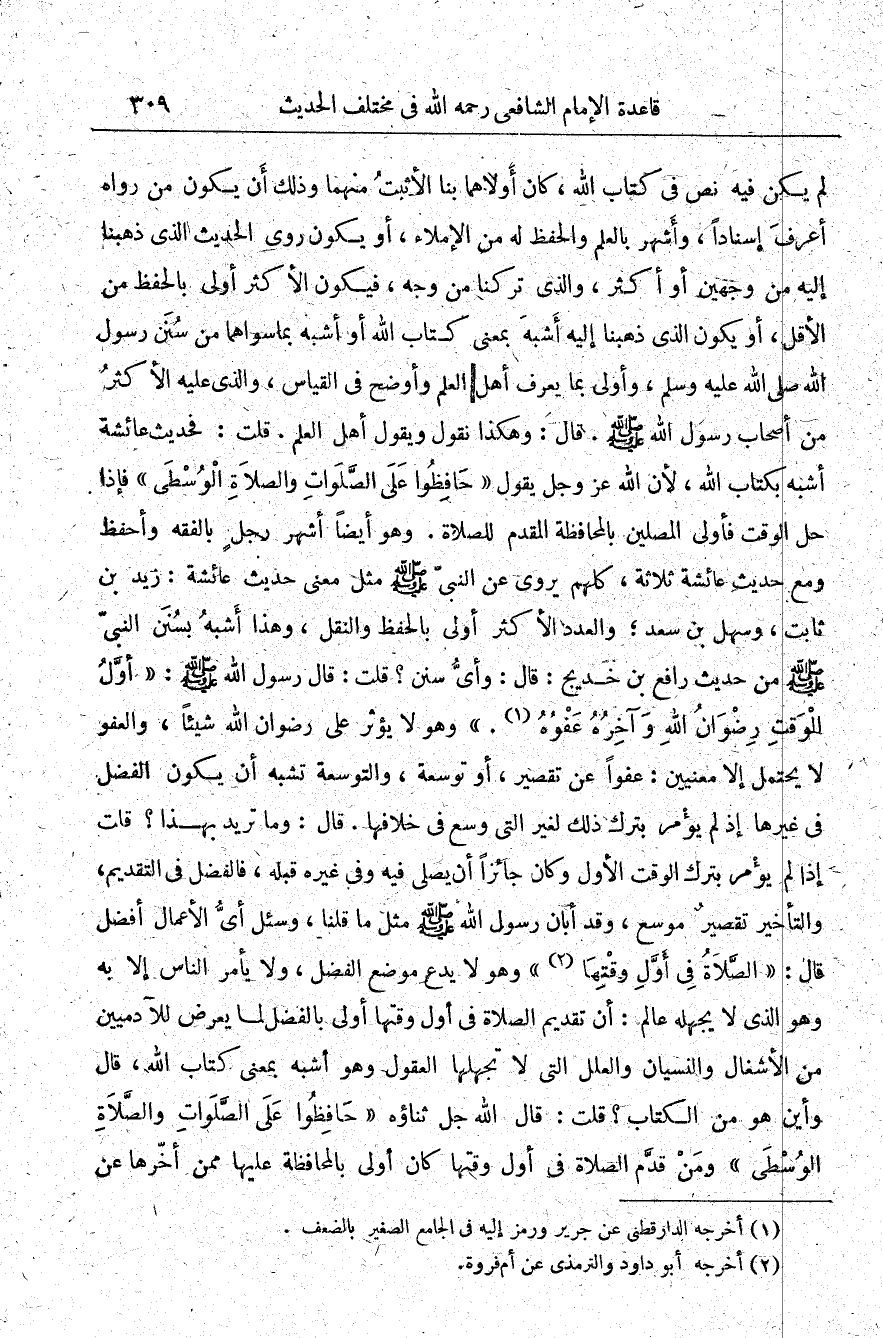 قاعدة الإمام الشافعى رحمه الله فى مختلف الحديث ٣٠٩
لم يكن فيه نص فى كتاب الله ، كان أَولاهما بنا الأثبتُ منهما وذلك أن يكون من رواه
أعرفَ إسناداً ، وأَشهر بالعلم والحفظ له من الإملاء ، أو يكون روى الحديث الذى ذهبنا
إليه من وجهين أو أكثر ، والذى تركنا من وجه ، فيكون الأكثر أولى بالحفظ من
الأقل ، أو يكون الذى ذهبنا إليه أَشبهَ بمعنى كتاب الله أو أشبه بماسواهما من سُنَن رسول
الله صلى الله عليه وسلم ، وأولى بما يعرف أهل العلم وأوضح فى القياس ، والذى عليه الأكثرُ
من أصحاب رسول الله ﷺ . قال : وهكذا نقول ويقول أهل العلم . قلت : فحديث عائشة
أشبه بكتاب الله ، لأن الله عز وجل يقول « حَافِظُوا عَلَى الصَّلَوَاتِ والصلاَةِ الْوُسْطَى » فإذا
حل الوقت فأولى المصلين بالمحافظة المقدم للصلاة . وهو أيضاً أشهر رجلٍ بالفقه وأحفظ
ومع حديث عائشة ثلاثة ، كلهم يروى عن النبىّ ﷺ مثل معنى حديث عائشة : زيد بن
ثابت ، وسهل بن سعد ؛ والعدد الأكثر أولى بالحفظ والنقل ، وهذا أَشبهُ بسُنَن النبىّ
ﷺ من حديث رافع بن خديج : قال : وأىُّ سنن ؟ قلت : قال رسول الله ﷺ : « أوَّلُ
الْوَقتِ رِضْوَانُ اللهِ وَآخِرُهُ عَفْوُهُ (١) . » وهو لا يؤثر على رضوان الله شيئاً ، والعفو
لا يحتمل إلا معنيين : عفواً عن تقصير ، أو توسعة ، والتوسعة تشبه أن يكون الفضل
فى غيرها إذ لم يؤمر بترك ذلك لغير التى وسع فى خلافها . قال : وما تريد بهذا ؟ قلت
إذا لم يؤمر بترك الوقت الأول وكان جائزاً أن يصلى فيه وفى غيره قبله ، فالفضل فى التقديم،
والتأخير تقصيرٌ موسع ، وقد أبان رسول الله ﷺ مثل ما قلنا ، وسئل أىُّ الأعمال أفضل
قال : « الصَّلاَةُ فِى أَوَّلِ وقْتِهَا (٢) » وهو لا يدع موضع الفضل ، ولا يأمر الناس إلا به
وهو الذى لا يجهله عالم : أن تقديم الصلاة فى أول وقتها أولى بالفضل لما يعرض للآدميين
من الأشغال والنسيان والعلل التى لا تجهلها العقول وهو أشبه بمعنى كتاب الله ، قال
وأين هو من الكتاب ؟ قلت : قال الله جل ثناؤه « حَافِظُوا عَلَى الصَّلَوَاتِ والصَّلاَةِ
الوُسْطَى » ومَنْ قدَّم الصلاة فى أول وقتها كان أولى بالمحافظة عليها ممن أخّرها عن
(١) أخرجه الدارقطنى عن جرير ورمز إليه فى الجامع الصغير بالضعف .
(٢) أخرجه أبو داود والترمذى عن أم فروة.